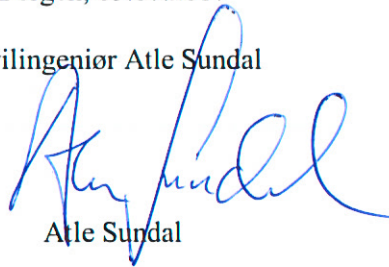 vilingeniør Atle Sundal
Atle Sundal
Atle Sundal